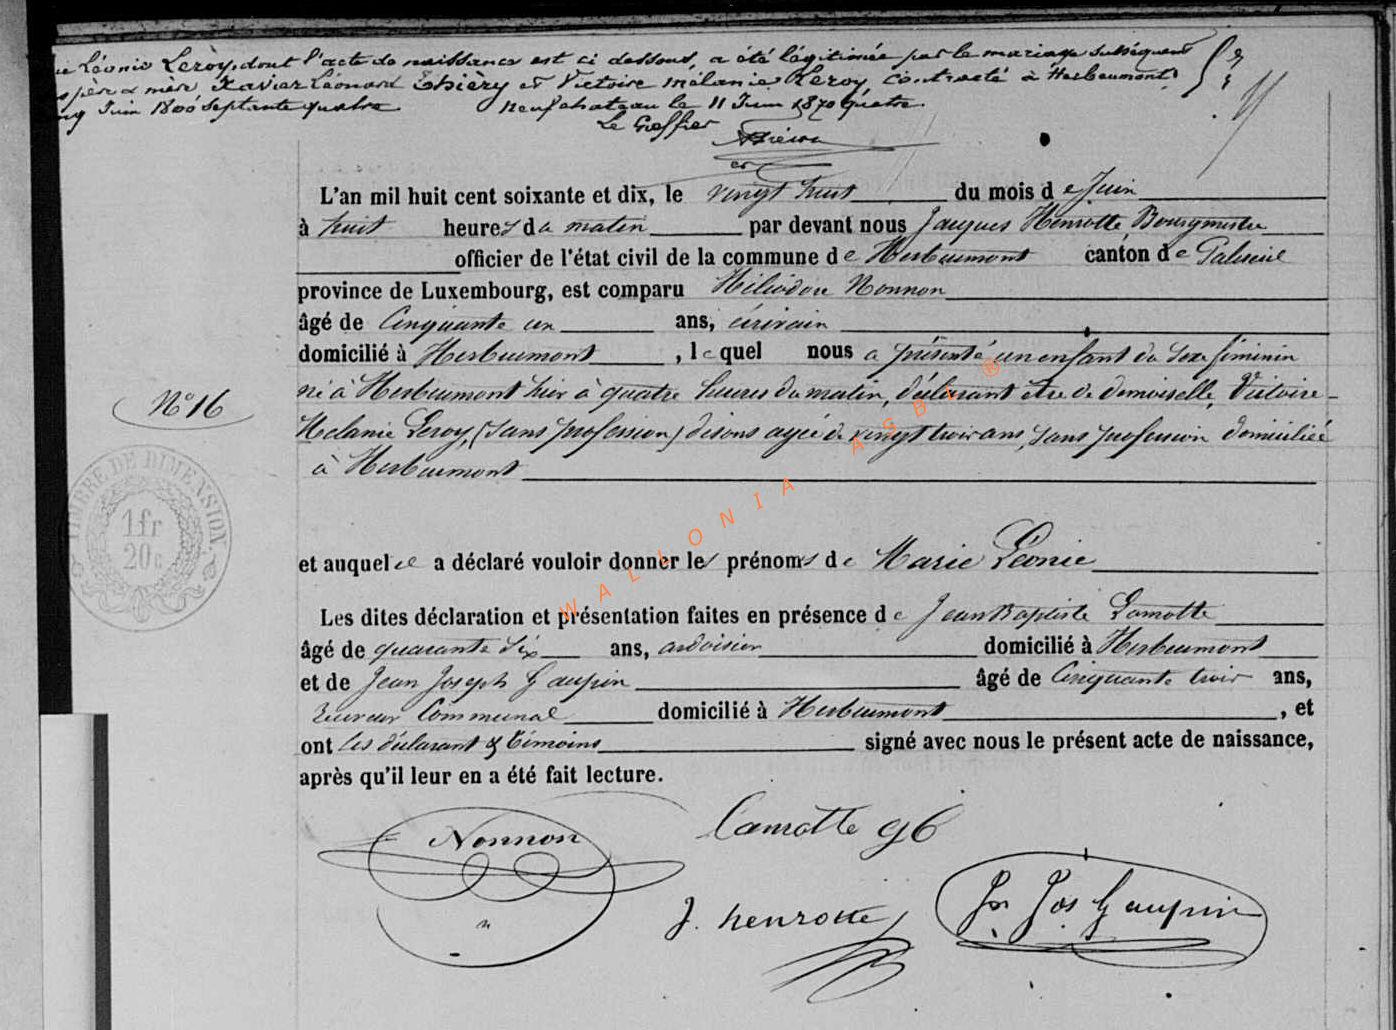 ie Léonie Leroy, dont l'acte de naissance est ci dessous, a été légitimée par le mariage subséquent
s père & mère, Xavier Léonard Thiéry et Victoire Mélanie Leroy, contracté à Herbeumont
Juin 1800 septante quatre. Neufchateau le 11 Juin 1870 quatre.
Le Greffier
L'an mil huit cent soixante et dix, le vingt huit du mois de Juin
à huit heures du matin par devant nous Jacques Henrotte Bourgmestre
officier de l'état civil de la commune de Herbeumont canton de Paliseul
province de Luxembourg, est comparu Héliodore Nonnon
âgé de Cinquante un ans, écrivain
domicilié à Herbeumont, lequel nous a présenté un enfant du sexe féminin
né à Herbeumont hier à quatre heures du matin, déclarant être de demoiselle, Victoire-
N° 16
Mélanie Leroy, (sans profession) disons agée de vingt trois ans, sans profession domiciliée
à Herbeumont
TIMBRE DE DIMENSION
1 fr
20 c
et auquel il a déclaré vouloir donner les prénoms de Marie Léonie
Les dites déclaration et présentation faites en présence de Jean Baptiste Lamotte
âgé de quarante six ans, ardoisier domicilié à Herbeumont
et de Jean Joseph Gaupin âgé de Cinquante trois ans,
receveur Communal domicilié à Herbeumont, et
ont les déclarant & témoins signé avec nous le présent acte de naissance,
après qu'il leur en a été fait lecture.
WALLONIA ASBL ®
Nonnon
Lamotte
J. henrotte
Jn Jos Gaupin